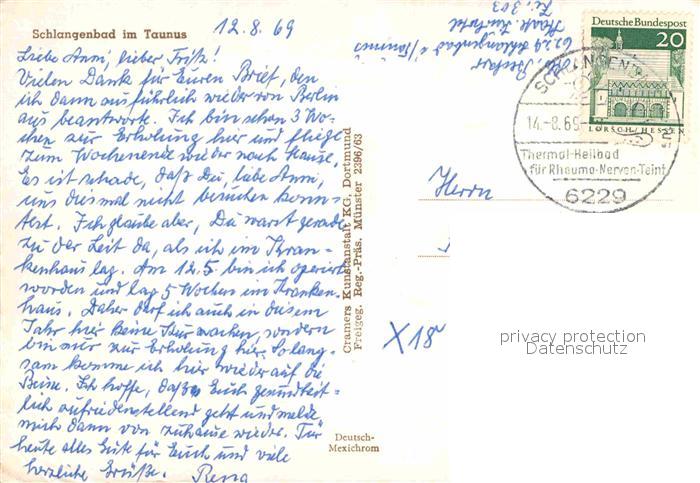 Schlangenbad im Taunus
12.8.69
Liebe Anni, lieber Fritz!
Vielen Dank für Euren Brief, den
ich dann ausführlich wieder von Berlin
aus beantworte. Ich bin schon 3 Wo-
chen zur Erholung hier und fliege
zum Wochenende wieder nach Hause.
Es ist schade, daß Du, liebe Anni,
uns diesmal nicht besuchen konn-
test. Ich glaube aber, Du warst gerade
zu der Zeit da, als ich im Kran-
kenhaus lag. Am 12.5. bin ich operiert
worden und lag 5 Wochen im Kranken-
haus. Daher darf ich auch in diesem
Jahr hier keine Kur machen, sondern
bin nur zur Erholung hier. So lang-
sam komme ich hier wieder auf die
Beine. Ich hoffe, daß es Euch gesundheit-
lich zufriedenstellend geht und melde
mich dann von zuhause wieder. Für
heute alles Gute für Euch und viele
herzliche Grüße.
Cramers Kunstanstalt KG, Dortmund
Freigeg. Reg.-Präs. Münster 2396/63
Deutsch-
Mexichrom
6229 Schlangenbad i/Taunus
Zi. 303
Deutsche Bundespost
20
LORSCH/HESSEN
SCHLANGENBAD
14.-8.69
Thermal-Heilbad
für Rheuma-Nerven-Teint
6229
Herrn
X18
privacy protection
Datenschutz